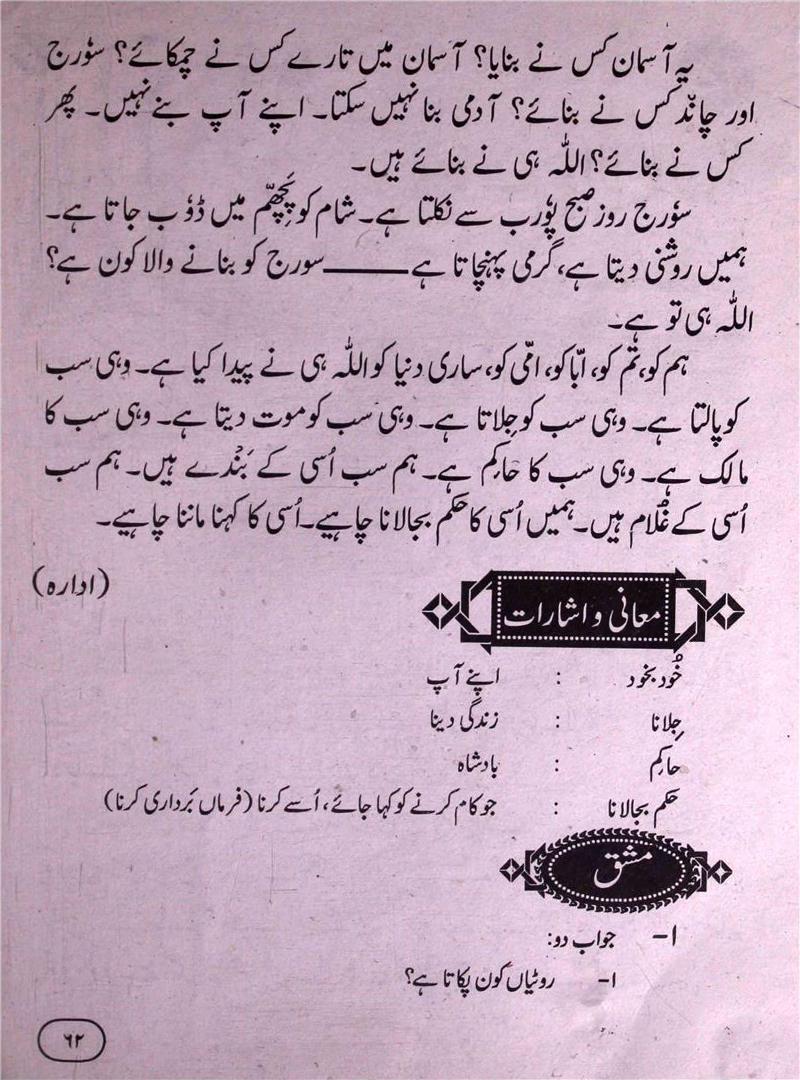 یہ آسمان کس نے بنایا؟ آسمان میں تارے کس نے چمکائے؟ سوٗرج
اور چاند کس نے بنائے؟ آدمی بنا نہیں سکتا۔ اپنے آپ بنے نہیں۔ پھر
کس نے بنائے؟ اللہ ہی نے بنائے ہیں۔
سوٗرج روز صبح پوٗرب سے نکلتا ہے۔ شام کو پَچھّم میں ڈوٗب جاتا ہے۔
ہمیں روشنی دیتا ہے، گرمی پہنچاتا ہے ——— سورج کو بنانے والا کون ہے؟
اللہ ہی تو ہے۔
ہم کو، تم کو، ابّا کو، امّی کو، ساری دنیا کو اللہ ہی نے پیدا کیا ہے۔ وہی سب
کو پالتا ہے۔ وہی سب کو جِلاتا ہے۔ وہی سب کو موت دیتا ہے۔ وہی سب کا
مالک ہے۔ وہی سب کا حاکِم ہے۔ ہم سب اُسی کے بَنْدے ہیں۔ ہم سب
اُسی کے غُلام ہیں۔ ہمیں اُسی کا حکم بجالانا چاہیے۔ اُسی کا کہنا ماننا چاہیے۔
(ادارہ)
معانی و اشارات
خُود بخود : اپنے آپ
جِلانا : زندگی دینا
حاکِم : بادشاہ
حکم بجالانا : جو کام کرنے کو کہا جائے، اُسے کرنا (فرماں بَرداری کرنا)
مشق
۱- جواب دو:
۱- روٹیاں کون پکاتا ہے؟
۶۲